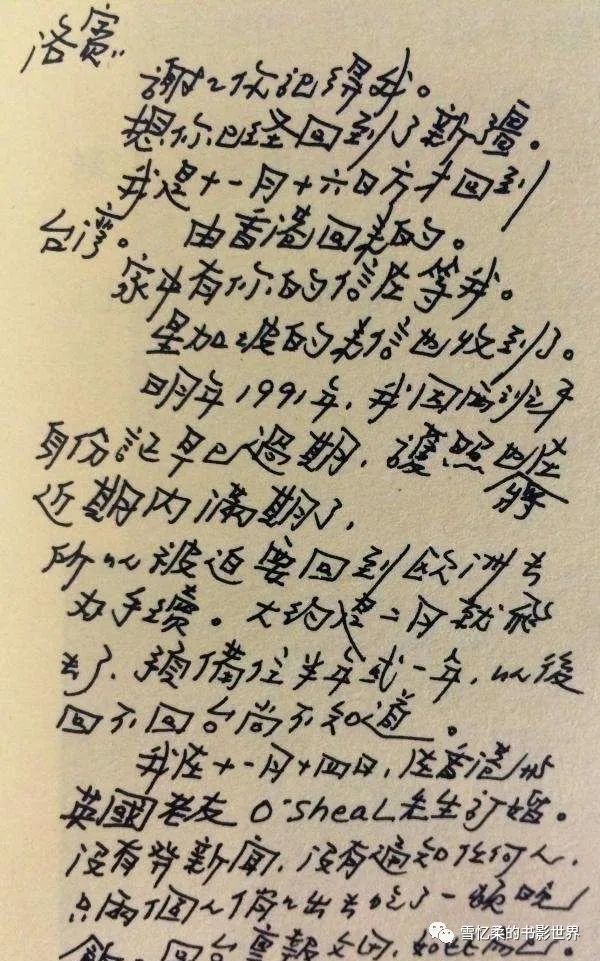 洛賓：
謝謝你記得我。
想你已經回到了新疆。
我是十一月十六日方才回到
台灣。由香港回來的。
家中有你的信在等我。
星加坡的老信也收到了。
明年1991年，我因西班牙
身份記早已過期，護照也在將
近期内滿期了，
所以被迫要回到歐洲去
为手續。大約在二月就飛
去了，預備住半年或一年，以後
回不回台尚不知道。
我在十一月十四日，在香港與
英國老友O'shea先生訂婚。
沒有發新聞，沒有通知任何人，
只兩個人悄悄出去吃了一頓晚
飯，回台
雪忆柔的书影世界